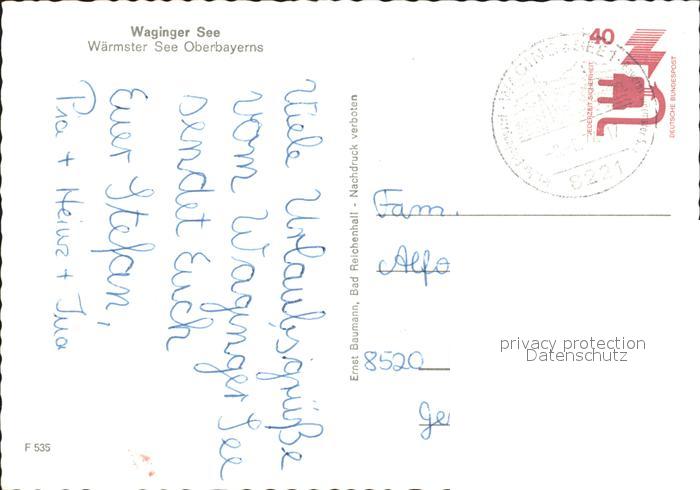 Waginger See
Wärmster See Oberbayerns
Viele Urlaubsgrüße
vom Waginger See
sendet Euch
Euer Stefan,
Pia + Heinz +
Ernst Baumann, Bad Reichenhall - Nachdruck verboten
40
JEDERZEIT SICHERHEIT
DEUTSCHE BUNDESPOST
8221
Fam.
Alfo
8520
Ge
privacy protection
Datenschutz
F 535